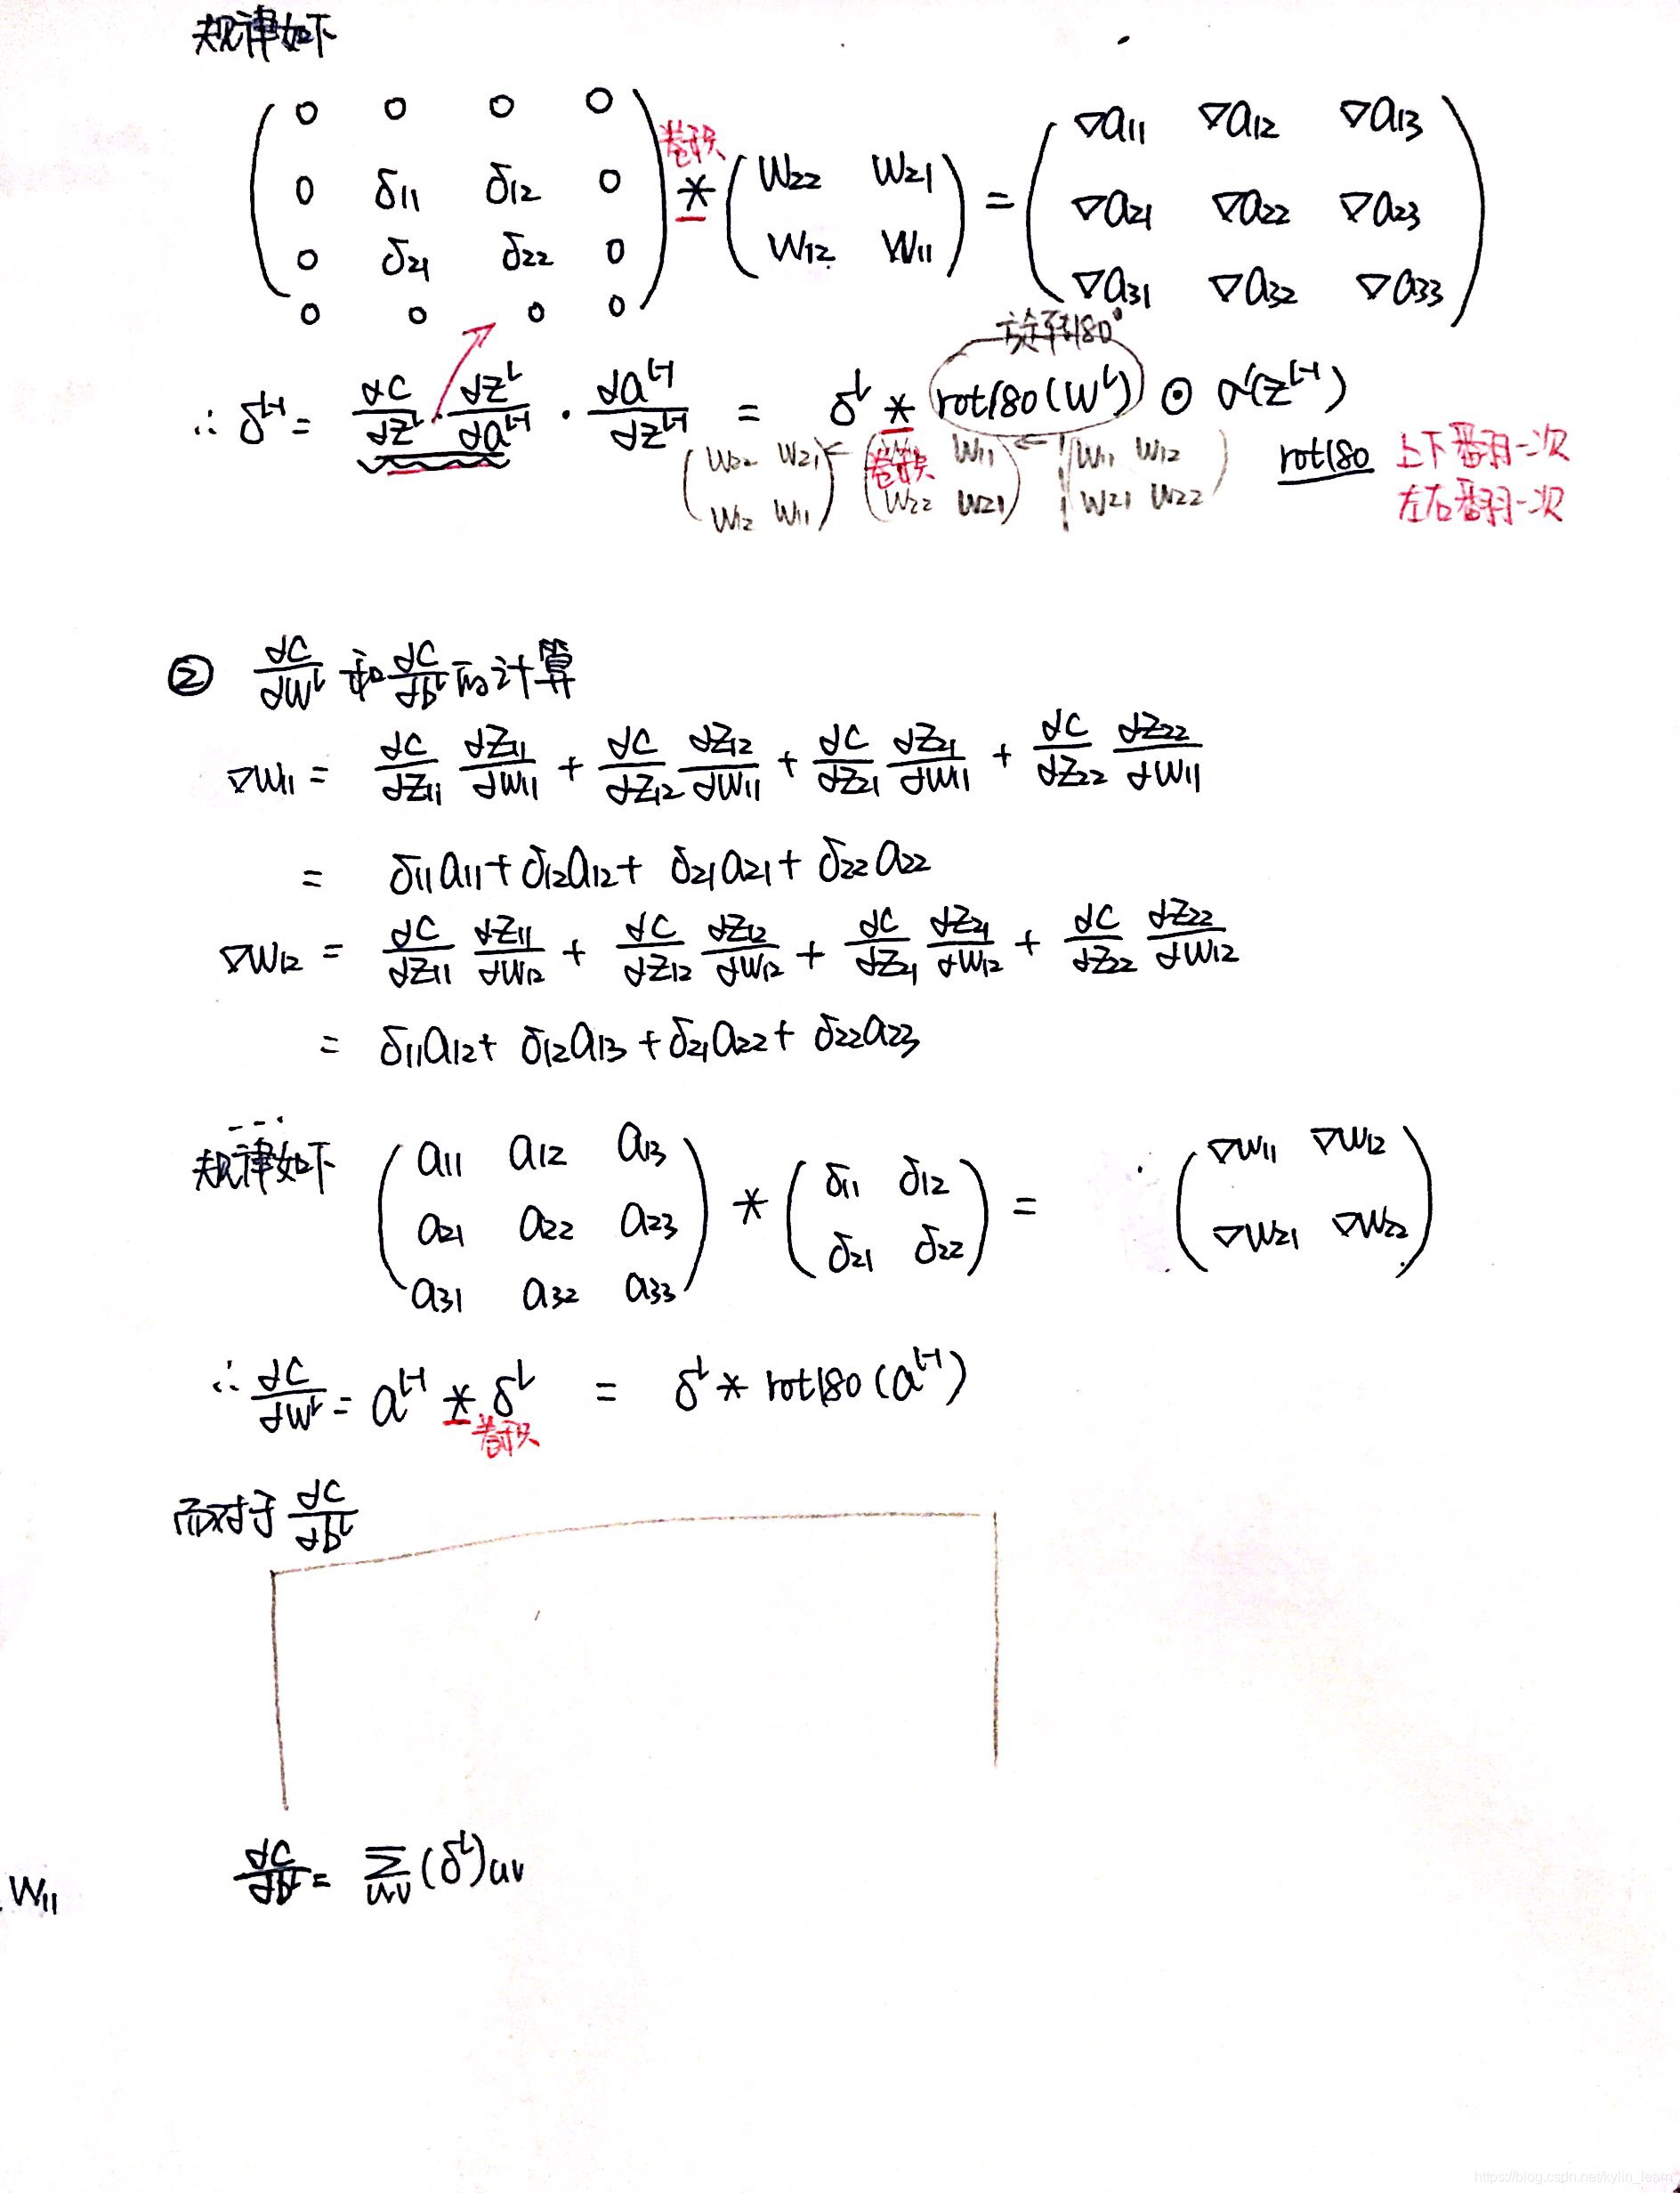 规律如下
( 0 0 0 0 ; 0 δ11 δ12 0 ; 0 δ21 δ22 0 ; 0 0 0 0 ) * 卷积 ( W22 W21 ; W12 W11 ) = ( ∇a11 ∇a12 ∇a13 ; ∇a21 ∇a22 ∇a23 ; ∇a31 ∇a32 ∇a33 )
旋转180°
∴ δ^{L-1} = dC/dZ^L · dZ^L/da^{L-1} · da^{L-1}/dZ^{L-1} = δ^L * rot180(W^L) ⊙ σ'(Z^{L-1})
( W22 W21 ; W12 W11 ) ← 卷积 ( W11 ; W22 W21 ) ← ( W11 W12 ; W21 W22 ) rot180 上下翻一次
左右翻一次
② dC/dW^L 和 dC/db^L 的计算
∇W11 = dC/dZ11 dZ11/dW11 + dC/dZ12 dZ12/dW11 + dC/dZ21 dZ21/dW11 + dC/dZ22 dZ22/dW11
= δ11a11 + δ12a12 + δ21a21 + δ22a22
∇W12 = dC/dZ11 dZ11/dW12 + dC/dZ12 dZ12/dW12 + dC/dZ21 dZ21/dW12 + dC/dZ22 dZ22/dW12
= δ11a12 + δ12a13 + δ21a22 + δ22a23
---
规律如下 ( a11 a12 a13 ; a21 a22 a23 ; a31 a32 a33 ) * ( δ11 δ12 ; δ21 δ22 ) = ( ∇W11 ∇W12 ; ∇W21 ∇W22 )
∴ dC/dW^L = a^{L-1} * δ^L = δ^L * rot180(a^{L-1})
卷积
而对于 dC/db^L
dC/db^L = Σ_{u,v} (δ^L)uv
W11
https://blog.csdn.net/kylin_learn